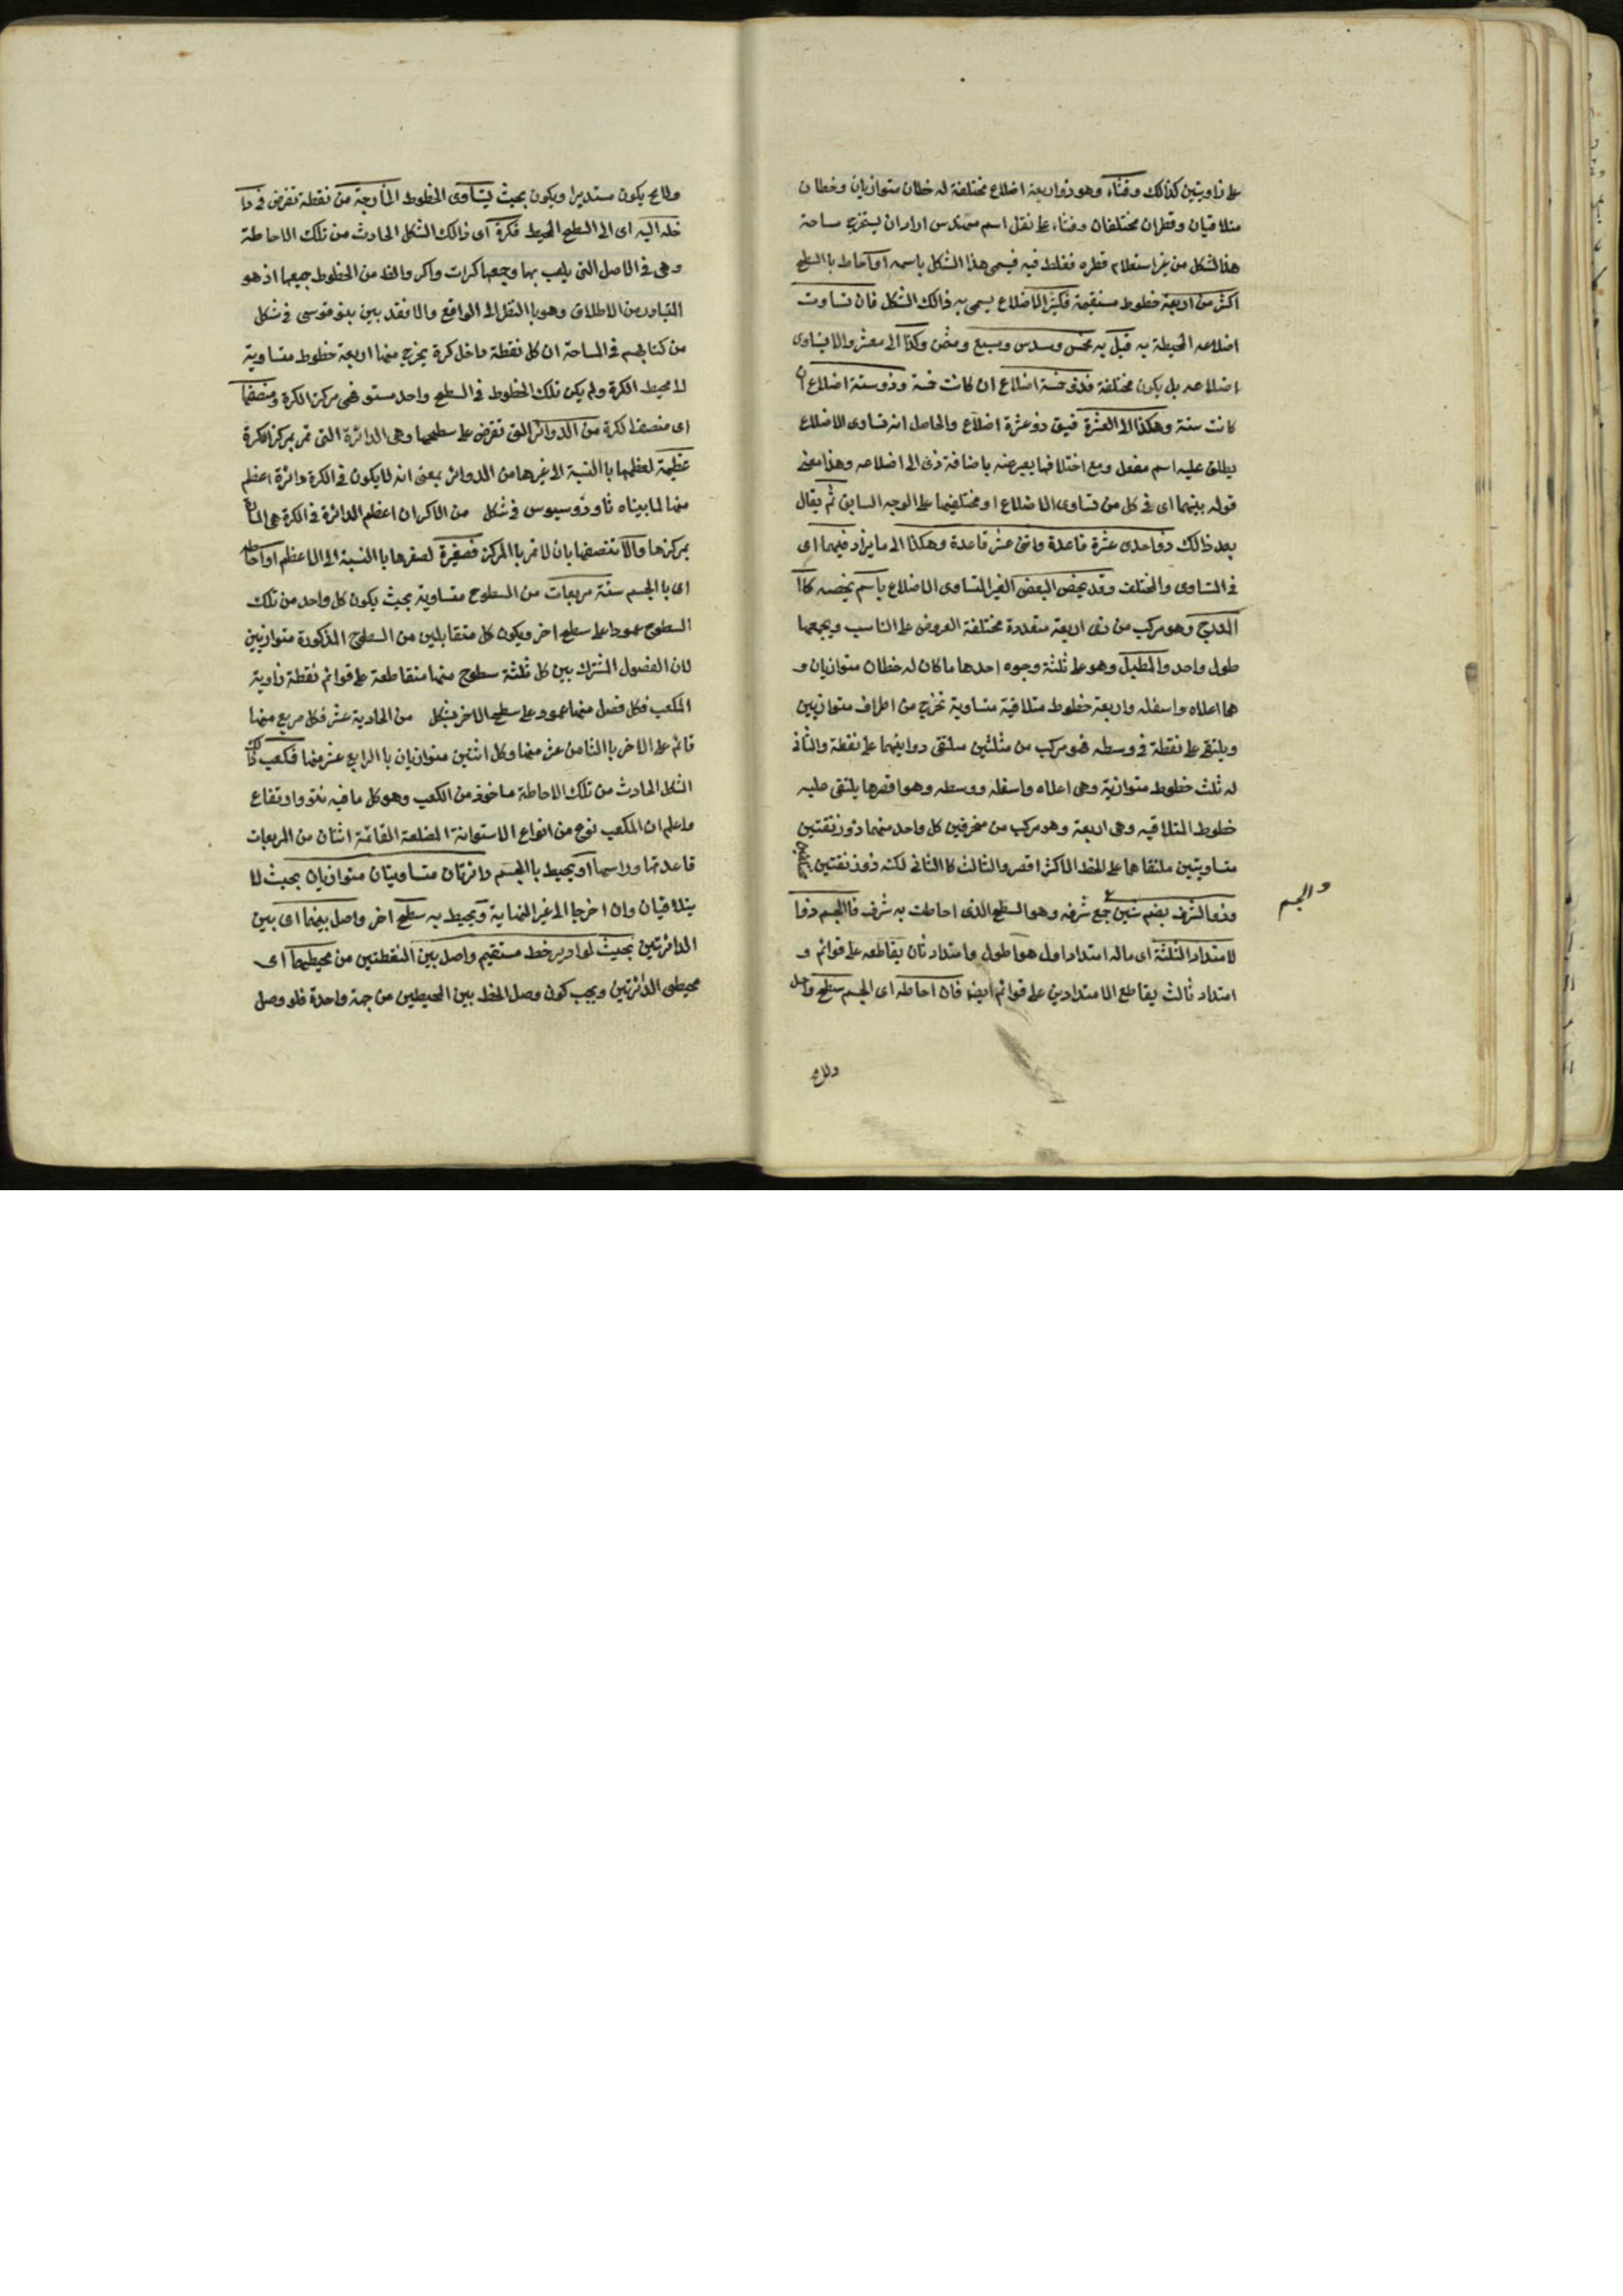 على زاويتين كذالك وقثاء وهو ذو اربعة اضلاع مختلفة له خطان متوازيان وخطان
متلاقيان وقطران مختلفان وقثاء على نقل اسم مهندس اراد ان يستخرج مساحة
هذا الشكل من غير استعلام قطره فغلط فيه فيسمى هذا الشكل باسمه او احاط باالسطح
اكثر من اربعة خطوط مستقيمة فكثير الاضلاع يسمى به ذالك الشكل فان تساوت
اضلاعه المحيطة به قيل به مخمس ومسدس ومسبع ومثمن وكذا الى معشر والا يتساوى
اضلاعه بل يكون مختلفة فذو خمسة اضلاع ان كانت خمسة وذو ستة اضلاع ان
كانت ستة وهكذا الى العشرة فيق ذو عشرة اضلاع والحاصل انه تساوى الاضلاع
يطلق عليه اسم مفعل ومع اختلافها يعبر عنه باضافة ذى الى اضلاعه وهذا معنى
قوله بينهما اى فى كل من تساوى الاضلاع او مختلفيها على الوجه السابق ثم يقال
بعد ذالك ذو احدى عشرة قاعدة واثنى عشر قاعدة وهكذا الى ما يزاد فيهما اى
فى المتساوى والمختلف وقد يخص البعض الغير المتساوى الاضلاع باسم يخصه كاا
المدرج وهو مركب من ذى اربعة متعددة مختلفة العروض على التناسب ويجمعها
طول واحد والمطبل وهو على ثلثة وجوه احدها ما كان له خطان متوازيان و
هما اعلاه واسفله واربعة خطوط متلاقية متساوية تخرج من اطراف متوازيين
ويلتقى على نقطة فى وسطه فهو مركب من مثلثين ملتقى زوايتهما على نقطة والثانى
له ثلث خطوط متوازية وهى اعلاه واسفله ووسطه وهو اقصرها يلتقى عليه
خطوط المتلاقيه وهى اربعة وهو مركب من منحرفين كل واحد منهما ذوزنقتين
متساويتين ملتقاهما على الخط الاكثر اقصر والثالث كاالثانى لكنه ذوزنقتين
وذو الشرف بضم شين جمع شرفه وهو السطح الذى احاطت به شرف فاالجسم ذو ا
والجسم
لامتداد الثلثة اى ماله امتداد اول هو طول وامتداد ثان يقاطعه على قوائم و
امتداد ثالث يقاطع الامتدادين على قوائم ايضا فان احاطه اى الجسم سطح واحد
ولا مح يكون مستديرا ويكون بحيث يتساوى الخطوط الخارجة من نقطة تفرض فى دا
خله اليه اى الى السطح المحيط فكرة اى ذالك الشكل الحادث من تلك الاحاطة
وهى فى الاصل التى يلعب بها وجمعها كرات واكر والمراد من الخطوط جميعها اذ هو
المتبادر من الاطلاق وهو باالنقل الى الواقع والا فقد بين بنو موسى فى شكل
من كتابهم فى المساحة ان كل نقطة داخل كرة يخرج منها اربعة خطوط متساوية
لا محيط الكرة ولم يكن تلك الخطوط فى السطح واحد مستو فهى مركز الكرة ومنصفها
اى منصف الكرة من الدوائر التى تفرض على سطحها وهى الدائرة التى تمر بمركز الكرة
عظيمة لعظمها باالنسبة الى غيرها من الدوائر بمعنى انه لا يكون فى الكرة دائرة اعظم
منها لما بيناه ثاوذوسيوس فى شكل من الاكر ان اعظم الدائرة فى الكرة هى المارة
بمركزها والا تنصفها بان لا تمر باالمركز فصغيرة لصغرها باالنسبة الى الاعظم او احاطه
اى باالجسم ستة مربعات من السطوح متساوية بحيث يكون كل واحد من تلك
السطوح عمودا على سطح اخر ويكون كل متقابلين من السطوح المذكورة متوازيين
لان الفصول المشترك بين كل ثلثة سطوح منها متقاطعة على قوائم نقطة زاوية
المكعب فكل فصل منها عمود على سطح الاخر بشكل من الحادية عشر فكل مربع منها
قائم على الاخر باالثامن عشر منها وكل اثنين متوازيان باالرابع عشر منها فمكعب ذالك
الشكل الحادث من تلك الاحاطة ماخوذ من الكعب وهو كل ما فيه نتو وارتفاع
واعلم ان المكعب نوع من انواع الاستوانة المضلعة القائمة اثنان من المربعات
قاعدتها وراسها او يحيط باالجسم دائرتان متساويتان متوازيان بحيث لا
يتلاقيان وان اخرجا الى غير النهاية ويحيط به سطح اخر واصل بينهما اى بين
الدائرتين بحيث لو ادير خط مستقيم واصل بين النقطتين من محيطيهما اى
محيطى الدائرتين ويجب كون وصل الخط بين المحيطين من جهة واحدة فلو وصل